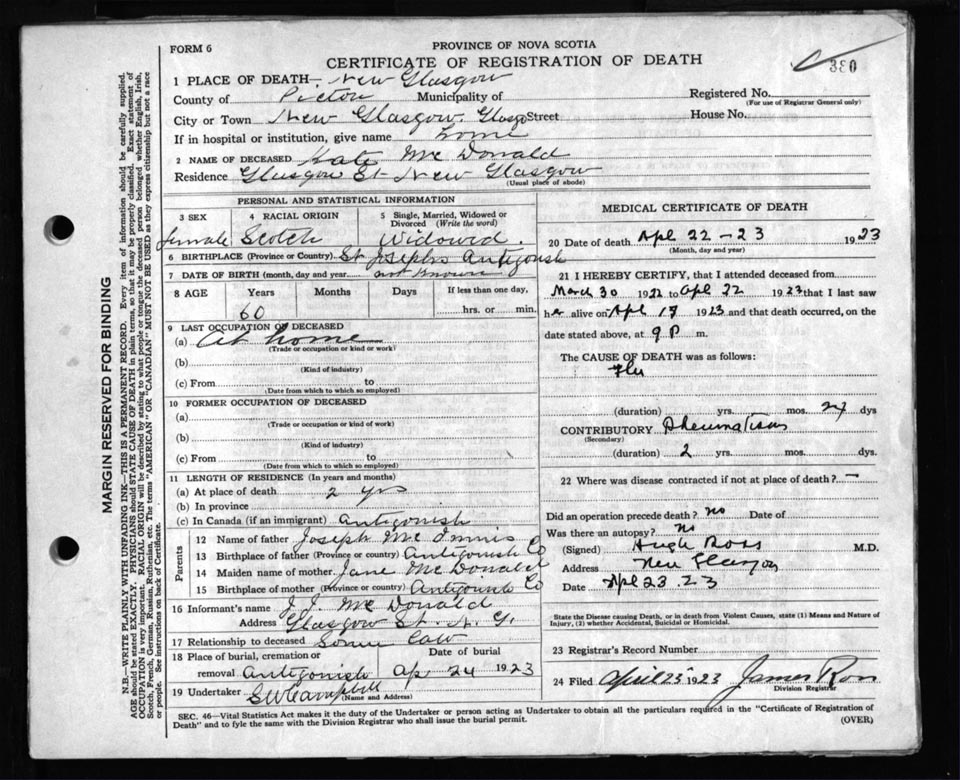 FORM 6
PROVINCE OF NOVA SCOTIA
CERTIFICATE OF REGISTRATION OF DEATH
380
1 PLACE OF DEATH— New Glasgow
County of Pictou Municipality of
Registered No.
(For use of Registrar General only)
City or Town New Glasgow. Glasgo Street
House No.
If in hospital or institution, give name home
2 NAME OF DECEASED Kate Mc Donald
Residence Glasgow St New Glasgow
(Usual place of abode)
PERSONAL AND STATISTICAL INFORMATION
3 SEX
female
4 RACIAL ORIGIN
Scotch
5 Single, Married, Widowed or Divorced (Write the word)
Widowed.
6 BIRTHPLACE (Province or Country) St Josephs Antigonish
7 DATE OF BIRTH (month, day and year) not known
8 AGE
Years
Months
Days
If less than one day,
60
hrs. or min.
9 LAST OCCUPATION OF DECEASED
(a) At home
(Trade or occupation or kind or work)
(b)
(Kind of industry)
(c) From to
(Date from which to which so employed)
10 FORMER OCCUPATION OF DECEASED
(a)
(Trade or occupation or kind of work)
(b)
(Kind of industry)
(c) From to
(Date from which to which so employed)
11 LENGTH OF RESIDENCE (In years and months)
(a) At place of death 2 yrs
(b) In province
(c) In Canada (if an immigrant) Antigonish
Parents
12 Name of father Joseph Mc Innis
13 Birthplace of father (Province or country) Antigonish Co
14 Maiden name of mother Jane McDonald
15 Birthplace of mother (Province or country) Antigonish Co
16 Informant's name J. J. McDonald
Address Glasgow St. N. G.
17 Relationship to deceased Son in law
18 Place of burial, cremation or removal Antigonish
Date of burial
Ap 24 1923
19 Undertaker SW Campbell
(Name and Address)
MEDICAL CERTIFICATE OF DEATH
20 Date of death Apl 22 - 23 1923
(Month, day and year)
21 I HEREBY CERTIFY, that I attended deceased from
March 30 1922 to Apl 22 1923 that I last saw
her alive on Apl 19 1923 and that death occurred, on the
date stated above, at 9 P m.
The CAUSE OF DEATH was as follows:
Flu
(duration) yrs. mos. 24 dys
CONTRIBUTORY Rheumatism
(Secondary)
(duration) 2 yrs. mos. dys.
22 Where was disease contracted if not at place of death? —
Did an operation precede death? no Date of
Was there an autopsy? no
(Signed) Hugh Ross M.D.
Address New Glasgow
Date Apl 23. 23
State the Disease causing Death, or in death from Violent Causes, state (1) Means and Nature of
Injury, (2) whether Accidental, Suicidal or Homicidal.
23 Registrar's Record Number
24 Filed April 23 1923 James Ross
Division Registrar
SEC. 46—Vital Statistics Act makes it the duty of the Undertaker or person acting as Undertaker to obtain all the particulars required in the "Certificate of Registration of
Death" and to fyle the same with the Division Registrar who shall issue the burial permit.
(OVER)
MARGIN RESERVED FOR BINDING
N.B.—WRITE PLAINLY WITH UNFADING INK—THIS IS A PERMANENT RECORD. Every item of information should be carefully supplied.
AGE should be stated EXACTLY. PHYSICIANS should STATE CAUSE OF DEATH in plain terms, so that it may be properly classified. Exact statement of
OCCUPATION is very important. RACIAL ORIGIN will be described by stating to what people or tongue the deceased person belonged whether English, Irish,
Scotch, French, German, Russian, Ruthenian, etc. The terms "AMERICAN" OR "CANADIAN" MUST NOT BE USED as they express citizenship but not a race
or people. See instructions on back of Certificate.